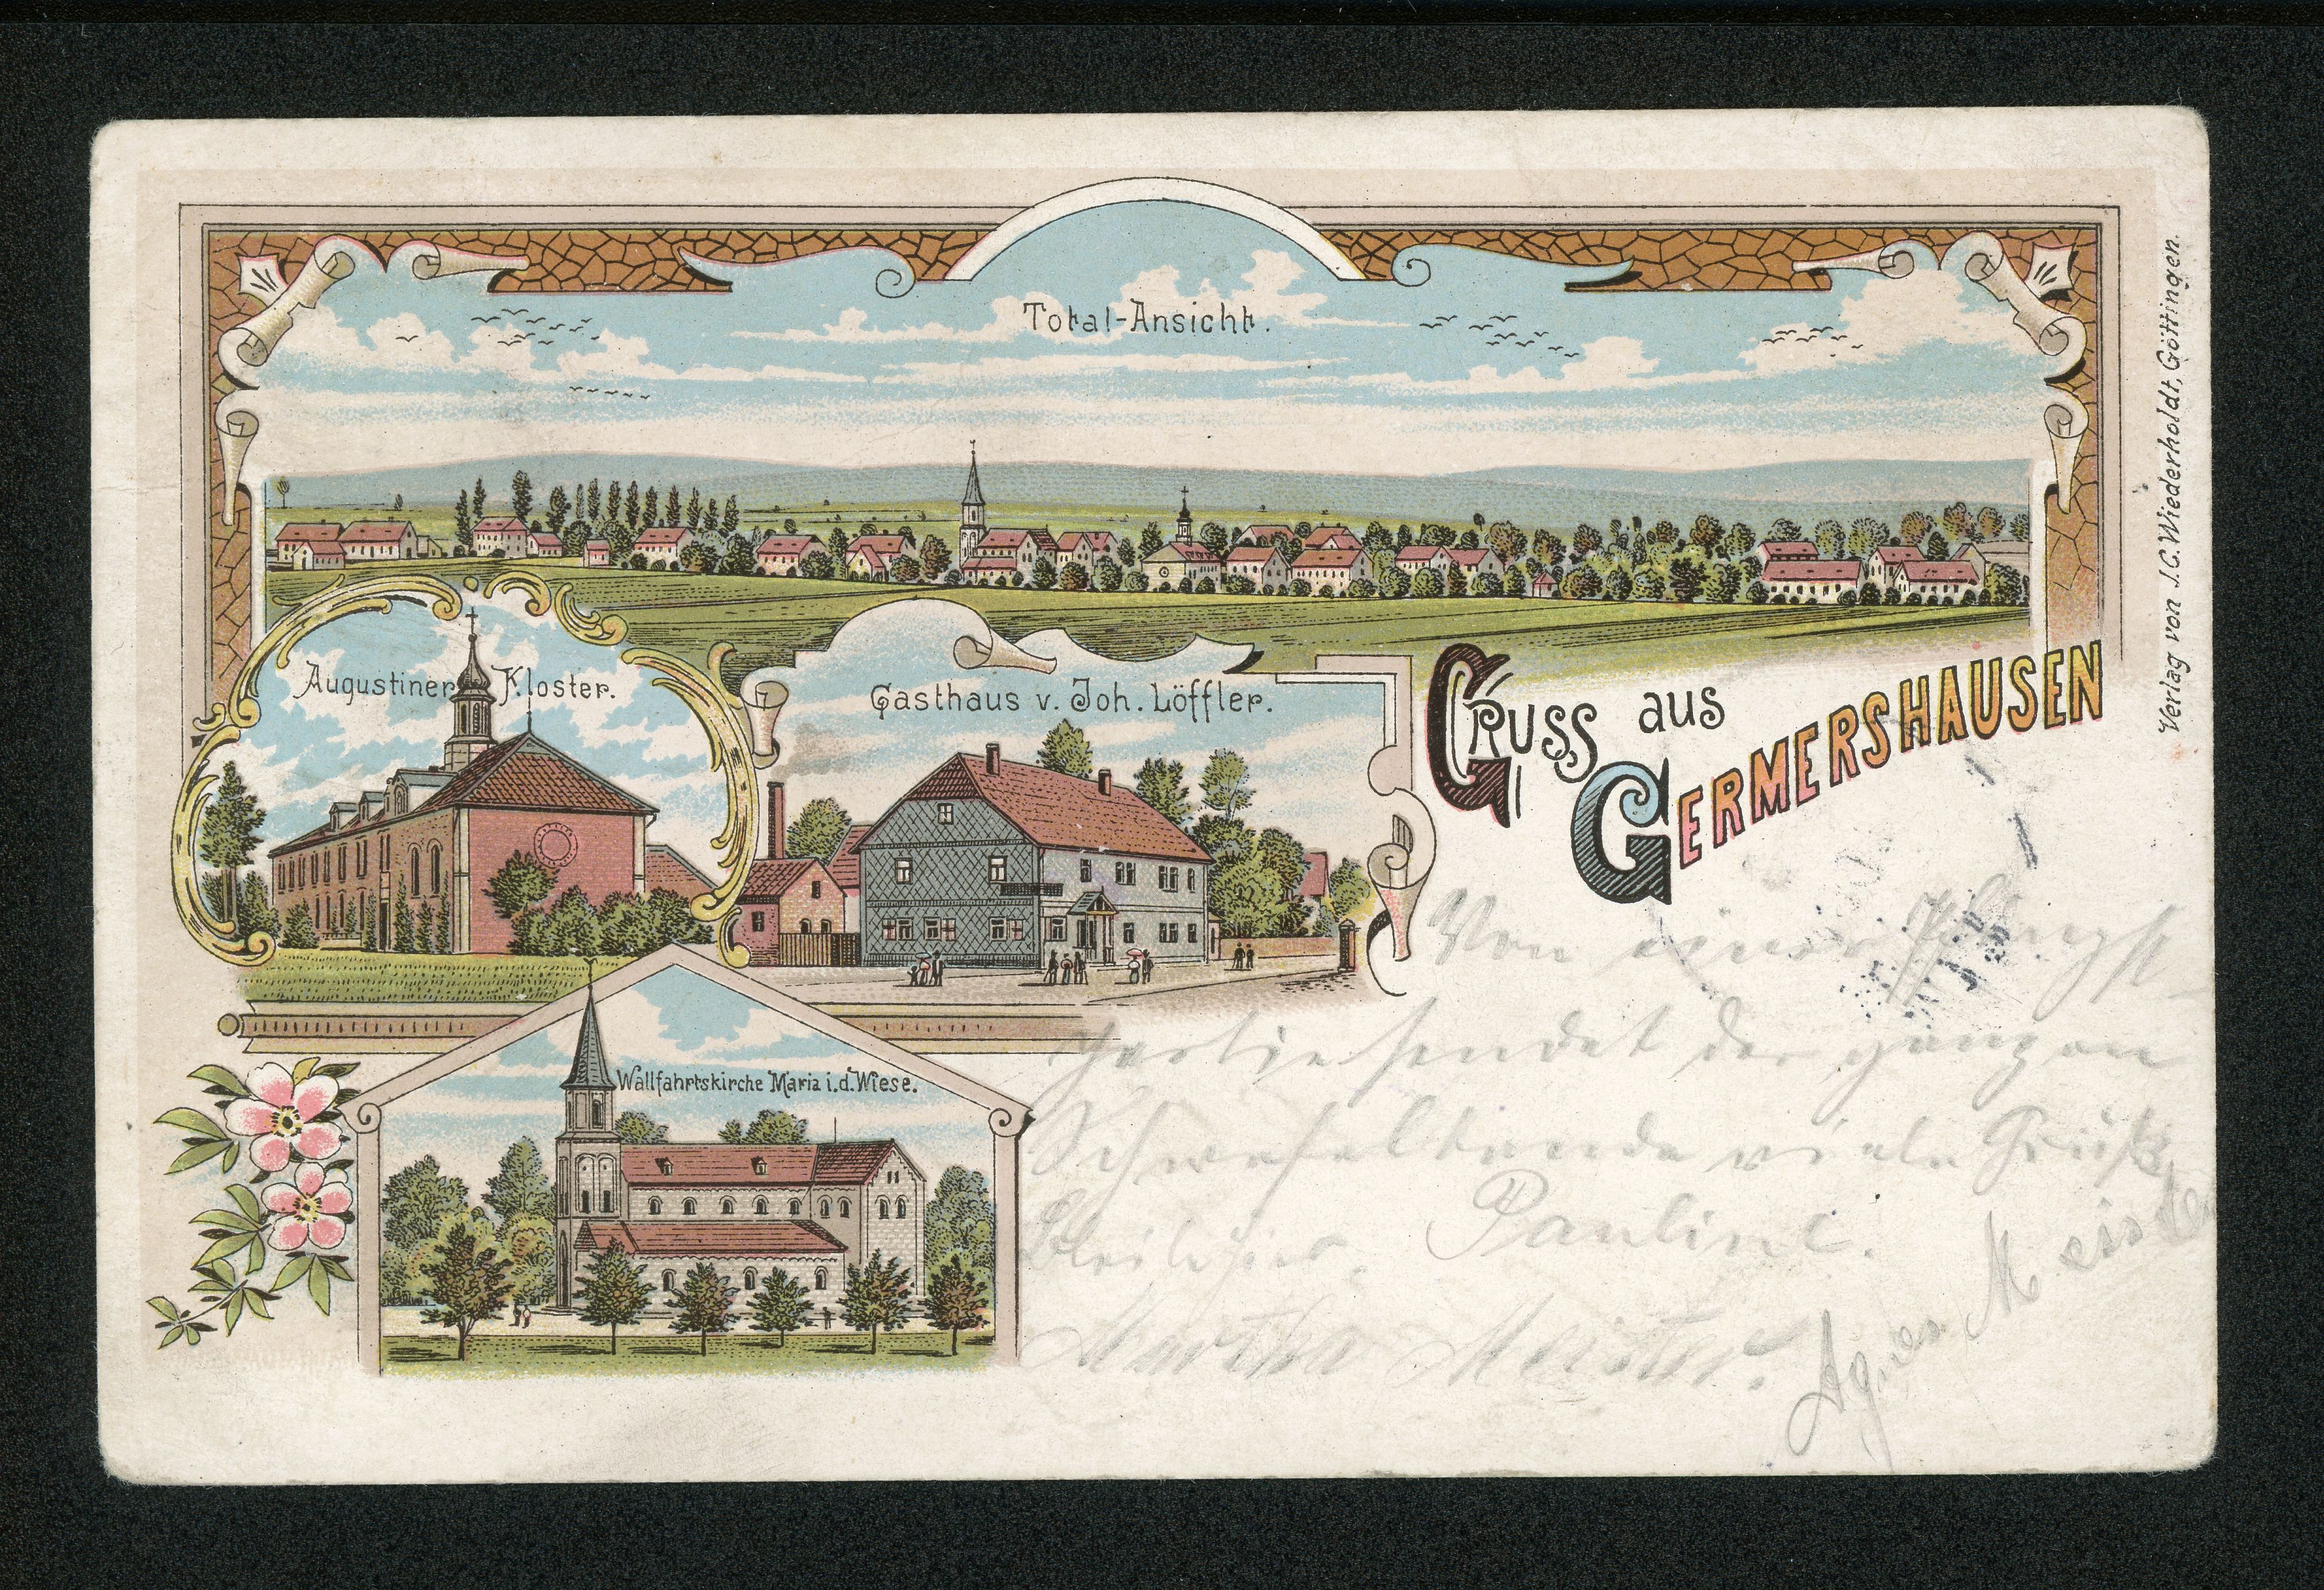 Total-Ansicht.
Augustiner Kloster.
Gasthaus v. Joh. Löffler.
Gruss aus
GERMERSHAUSEN
Verlag von J.C. Wiederholdt, Göttingen.
Wallfahrtskirche Maria i.d. Wiese.
Von einer Pfingst-
partie sendet der ganzen
viele Grüße
Pauline.
Martha Meister.
Agnes Meister